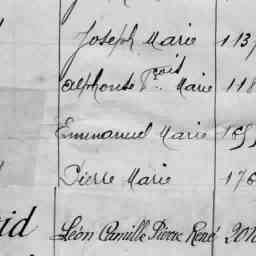 Joseph Marie 113
Alphonse Fçois Marie 118
Emmanuel Marie
Pierre Marie 176
id Léon Camille Pierre René 201